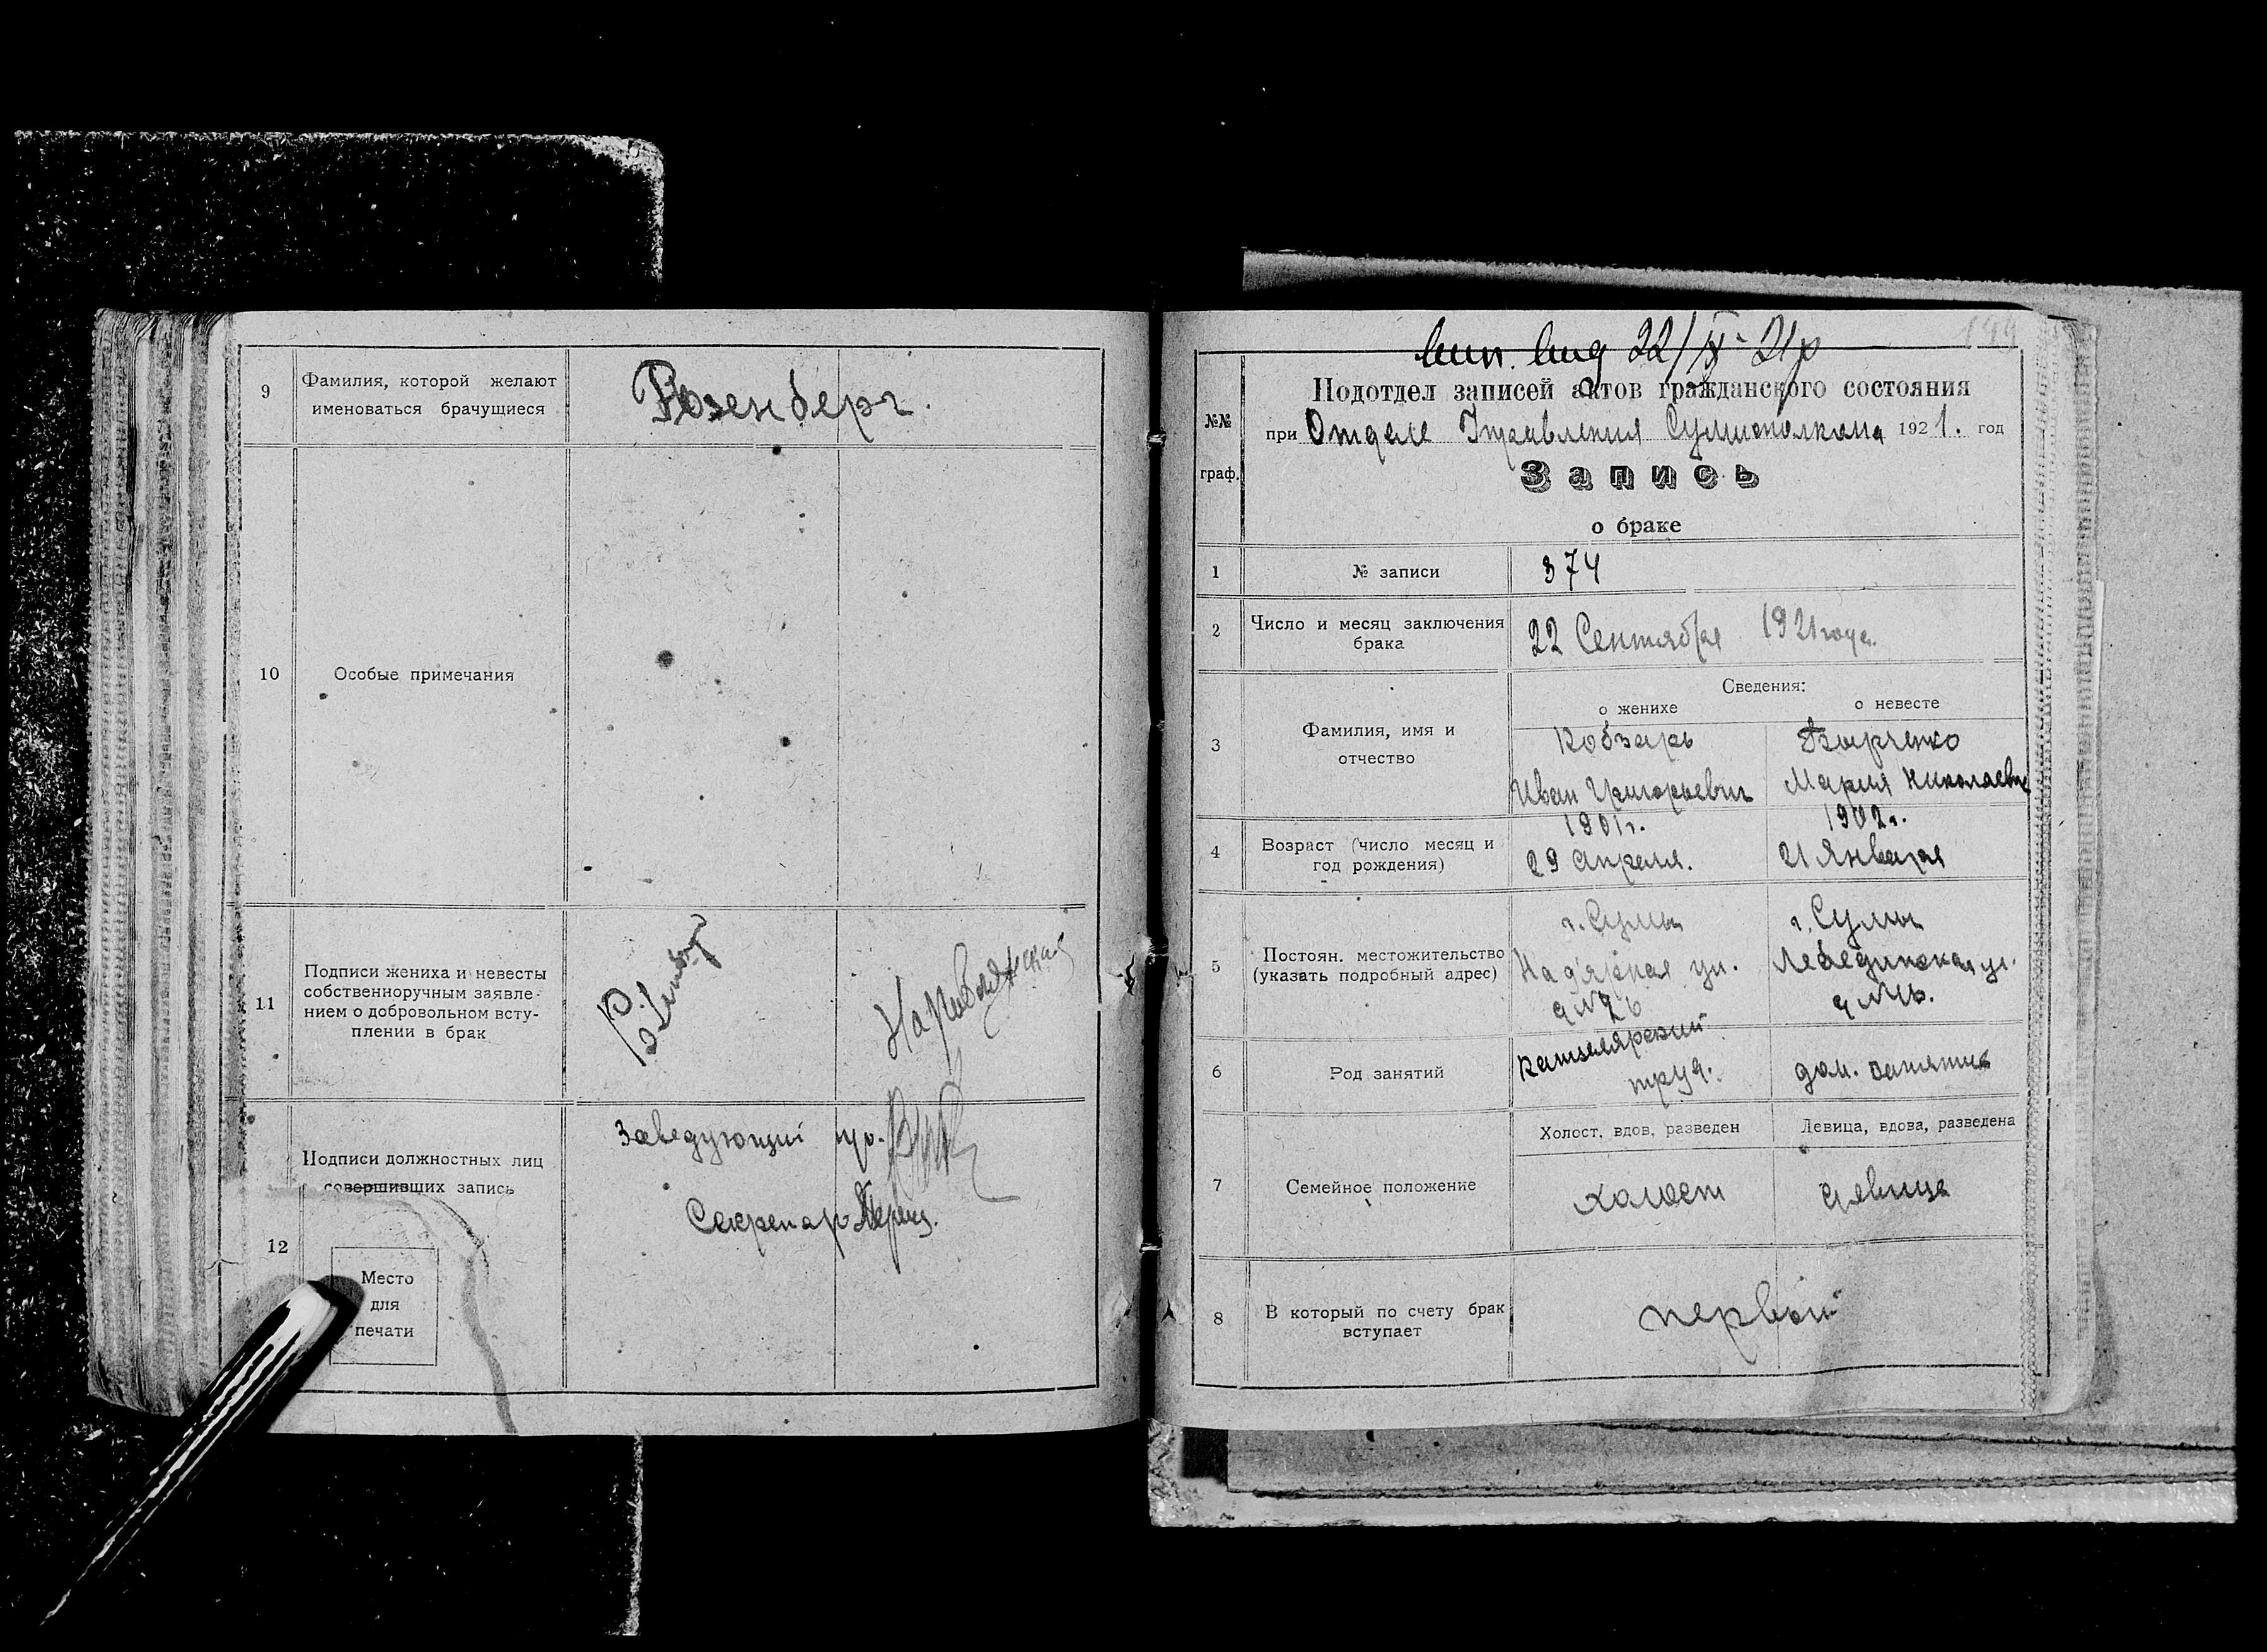 9
Фамилия, которой желают
именоваться брачущиеся
Розенберг.
10
Особые примечания
11
Подписи жениха и невесты
собственноручным заявле-
нием о добровольном всту-
плении в брак
Подписи должностных лиц
совершивших запись
Заведующий
Секретар
12
Место
для
печати
22/IX-21р
Подотдел записей актов гражданского состояния
№№
граф.
при Отделе Управления 1921. год
Запись
о браке
1
№ записи
374
2
Число и месяц заключения
брака
22 Сентября 1921 года.
3
Фамилия, имя и
отчество
Сведения:
о женихе
о невесте
Кобзарь
Иван Григорьевич
Мария Николаевн
4
Возраст (число месяц и
год рождения)
1901г.
29 Апреля.
1902г.
21 Января
5
Постоян. местожительство
(указать подробный адрес)
г. Сумы
ул.
г. Сумы
Лебединская ул.
6
Род занятий
Канцелярский
труд.
дом. занятие
7
Семейное положение
Холост, вдов, разведен
Девица, вдова, разведена
холост
девица
8
В который по счету брак
вступает
первый